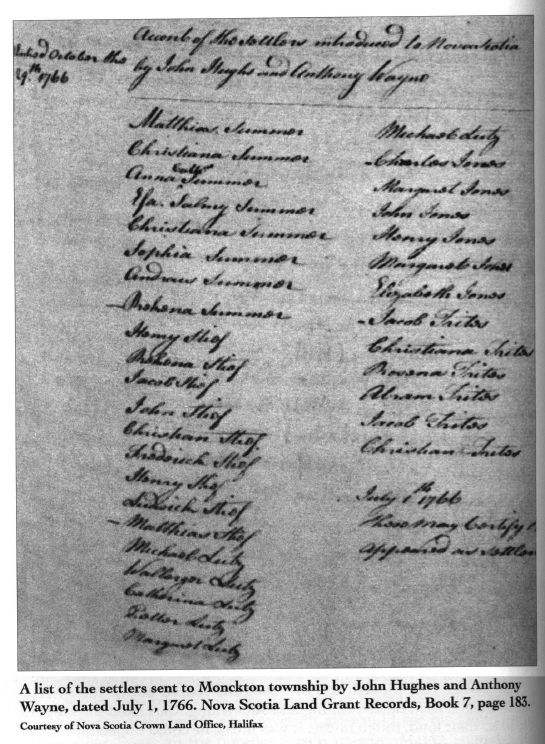 Account of the settlers introduced to Nova Scotia
by John Hughs and Anthony Wayne
October the
29.th 1766
Matthias Summer
Christiana Summer
Anna Cath Summer
Summer
Christiana Summer
Sophia Summer
Andraus Summer
Rohena Summer
Henry Stief
Rohena Stief
Jacob Stief
John Stief
Christian Stief
Frederick Stief
Henry Stief
Ludwick Stief
Matthias Stief
Michael Lutz
Walborger Lutz
Catharina Lutz
Lutz
Margaret Lutz
Michael Lutz
Charles Jones
Margaret Jones
John Jones
Henry Jones
Margaret Jones
Elizabeth Jones
Jacob Trites
Christiana Trites
Trites
Abram Trites
Jacob Trites
Christian Trites
July 1th 1766
These may Certify
appeared as settlers
A list of the settlers sent to Monckton township by John Hughes and Anthony
Wayne, dated July 1, 1766. Nova Scotia Land Grant Records, Book 7, page 183.
Courtesy of Nova Scotia Crown Land Office, Halifax